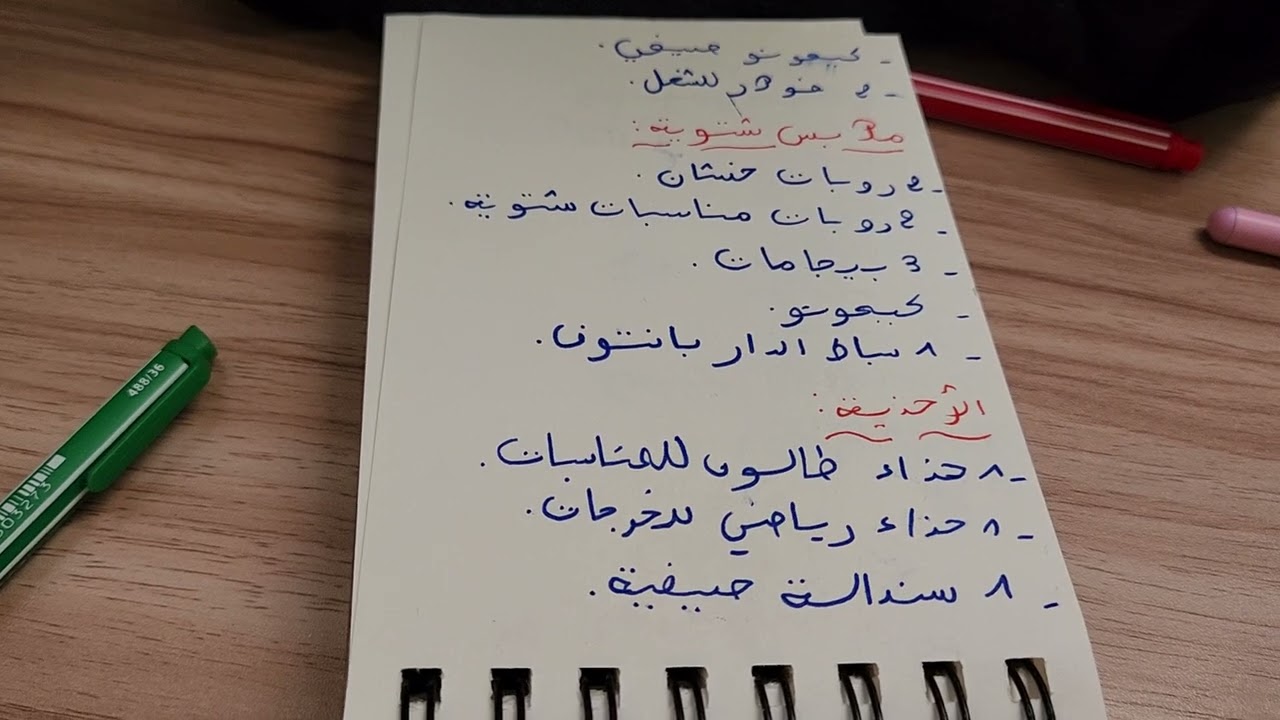 - كيمونو صيفي.
- 2 خوهر للشغل.
ملابس شتوية:
- 2 روبات خشان.
- 2 روبات مناسبات شتوية.
- 3 بيجامات.
- كيمونو.
- 1 سباط الدار بانتوف.
الأحذية:
- 1 حذاء طالون للمناسبات.
- 1 حذاء رياضي للخرجات.
- 1 سندالة صيفية.
488/36
003273